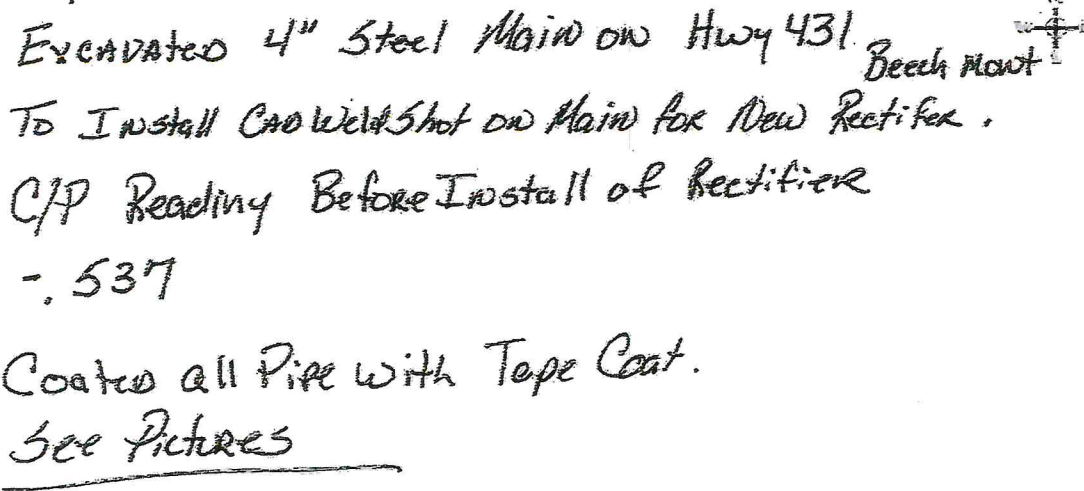 Excavated 4" Steel Main on Hwy 431. Beech Mont
To Install CAD Weld Shot on Main for New Rectifer.
C/P Reading Before Install of Rectifier
-.537
Coated all Pipe with Tape Coat.
See Pictures